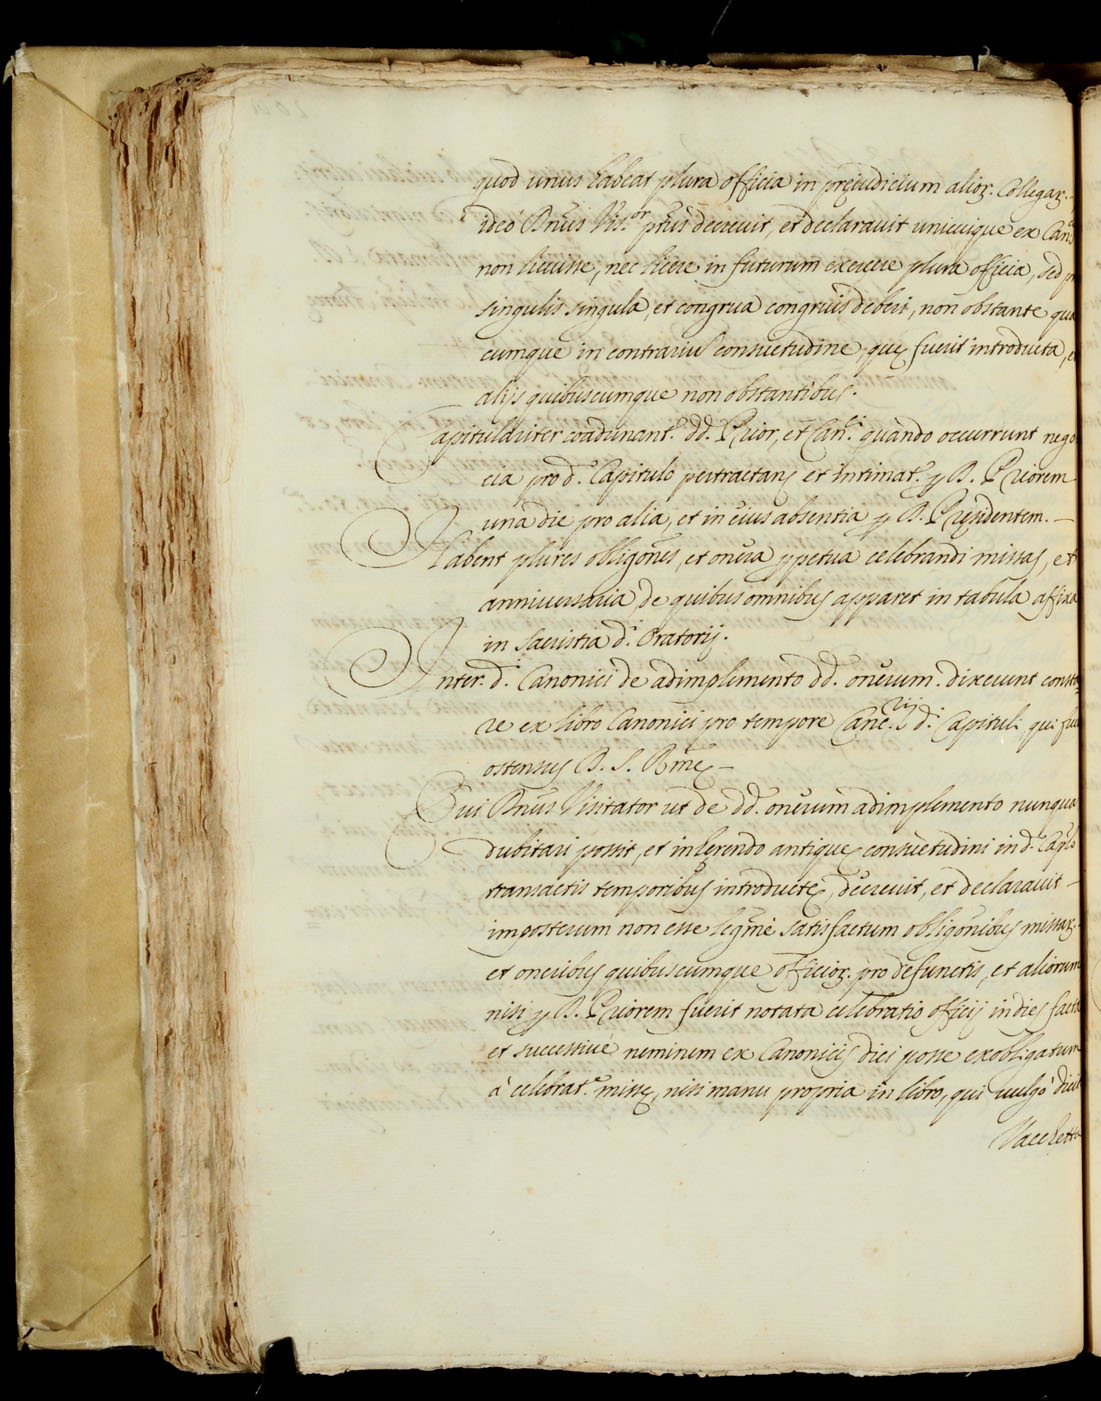 quod unus habeat plura officia in pręiudicium alioȝ. Collegaȝ.
ideò Dnus Vis.or ptus decreuit, et declarauit unicuique ex Can.cis
non licuisse, nec licere in futurum exercere plura officia, sed
singulis singula, et congrua congruis deberi, non obstante qua
cumque in contrariũ consuetudine, quę fuerit introducta,
alijs quibuscumque non obstantibus.
Capitulariter coadunant.r dd. Prior, et Can.ci quando occurrunt nego
cia pro d.o Capitulo pertractanda et intimat.r p D. Priorem
una die pro alia, et in eius absentia p D. Pręsidentem. —
Habent plures obligones, et onera ppetua celebrandi missas, et
anniuersaria, de quibus omnibus apparet in tabula affixa
in sacristia d.i Oratorij.
Inter. d.i Canonici de adimplemento dd. onerum. dixerunt consta
re ex libro Canonici pro tempore Canc.rij d.i Capituli qui fuit
ostensus D. S. Rmę —
Qui Dnus Visitator ut de dd. onerum adimplemento nunqua
dubitari possit, et inherendo antiquę consuetudini in d.o Caplo
transactis temporibus introductę, decreuit, et declarauit —
imposterum non esse legme satisfactum obligonibus missaȝ.
et oneribus quibuscumque officioȝ. pro defunctis, et aliorum
nisi p D. Priorem fuerit notata celebratio officij indies facta
et successiue neminem ex Canonicis dici posse exobligatum
à celebrat.e missę, nisi manu propria in libro, qui uulgò dicit
Vacchetta